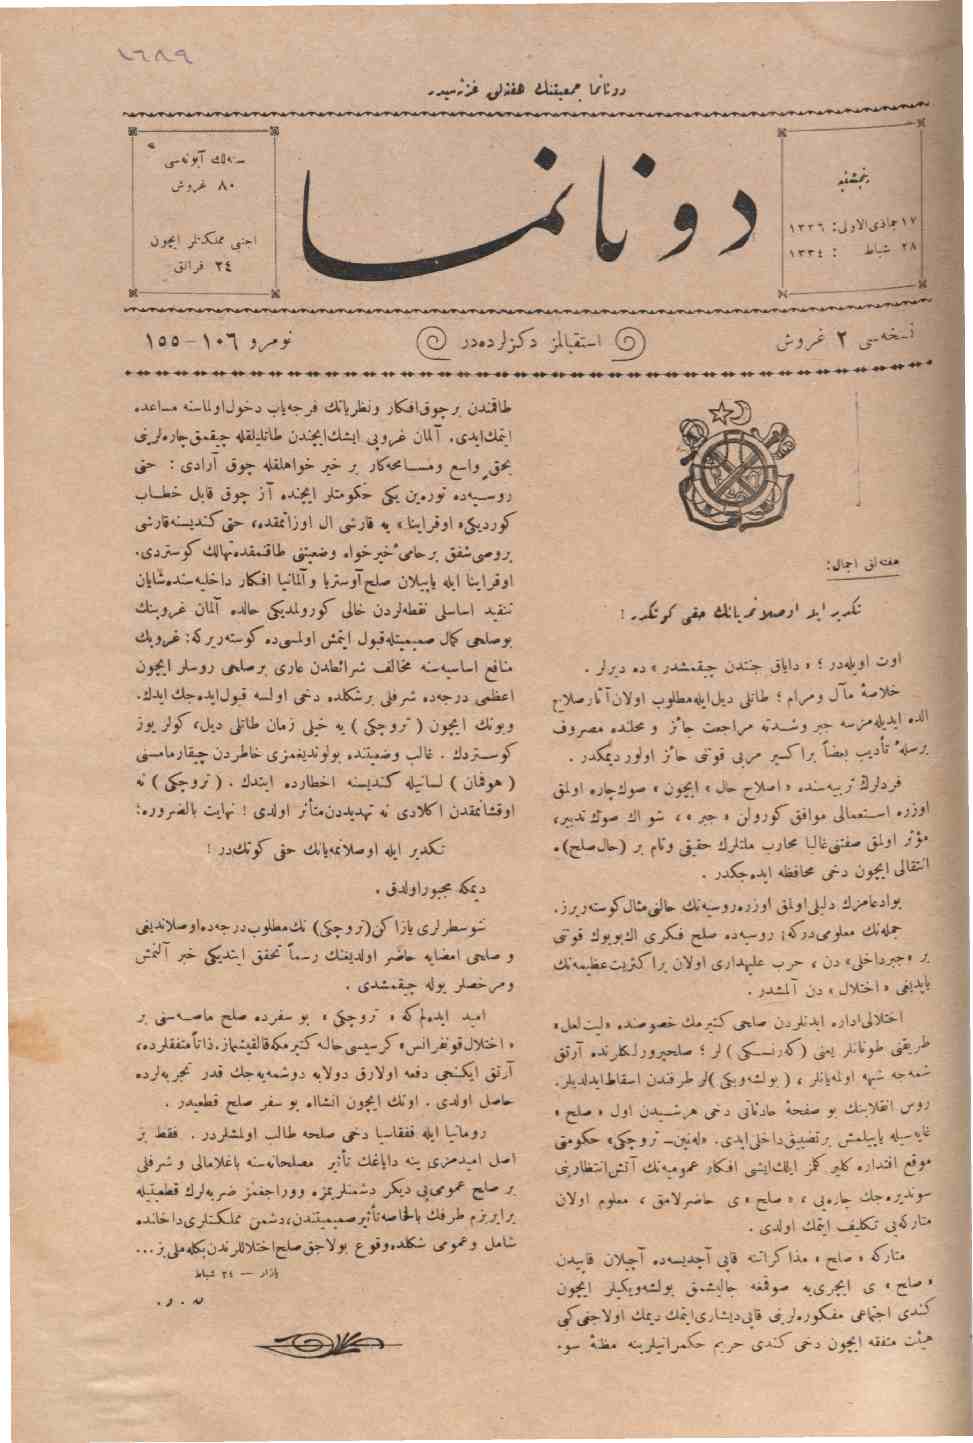 ١٦٨٩
دونانما جمعیتنك هفته‌لق غزته‌سیدر
پنجشنبه
١٧ جماذی‌الاولی: ١٣٣٦
٢٨ شباط : ١٣٣٤
دونانما
سنه‌لك آبونه‌سی
٨٠ غروش
اجنبی مملکتلر ایچون
٢٤ فرانق
نسخه‌سی ٢ غروش
استقبالمز دکزلرده‌در
نومرو ١٠٦–١٥٥
هفته‌لق اجمال:
تكدیر ایله اوصلانمه‌یانك حقی كوتكدر!
اوت اویله‌در؛ «دایاق جنتدن چیقمشدر» ده دیرلر.
خلاصهٔ مآل ومرام؛ طاتلی دیل ایله مطلوب اولان آثار صلاح
الده ایدیله‌مزسه جبر وشدته مراجعت جائز و محلنده مصروف
برسلهٔ تأدیب بعضاً براكسیر مربی قوتنی حائز اولور دیمكدر.
فردلرك تربیه‌سنده «اصلاح حال» ایچون «صوك چاره اولمق
اوزره استعمالی موافق كورولن «جبر»، شو اك صوك تدبیر،
مؤثر اولمق صفتنی غالبا محارب ملتلرك حقیقی وتام بر (حال صلح)ه
انتقالی ایچون دخی محافظه ایده‌جكدر.
بوادعامزك دلیلی اولمق اوزره روسیه‌نك حالنی مثال كوسته‌ریرز.
جمله‌نك معلومی‌دركه: روسیه‌ده صلح فكری اك بویوك قوتنی
بر «جبر داخلی» دن، حرب علیهداری اولان براكثریت عظیمه‌نك
یاپدیغی «اختلال» دن آلمشدر.
اختلالی اداره ایدنلردن صلحی كتیرمك خصوصنده «لیت لعل»
طریقنی طوتانلر یعنی (كه‌رنسكی) لر؛ صلحپرورلكلرنده آرتق
شمه‌جه شبهه اولمه‌یانلر، (بولشه‌ویكی) لر طرفندن اسقاط ایدلدیلر.
روس انقلابنك بو صفحهٔ حادثاتی دخی هرشیدن اول «صلح»
غایه‌سیله یاپیلمش بر تضییق داخلی ایدی. «له‌نین – تروچكی» حكومتی
موقع اقتداره كلیر كلمز ایلك ایشی افكار عمومیه‌نك آتش انتظارینی
سوندیره‌جك چاره‌یی، «صلح» ی حاضرلامق، معلوم اولان
متاركه‌یی تكلیف ایتمك اولدی.
متاركه «صلح» مذاكراتنه قاپی آچدیسه‌ده آچیلان قاپیدن
«صلح» ی ایچری‌یه صوقمغه چالیشمق بولشه‌ویكیلر ایچون
كندی اجتماعی مفكوره‌لرینی قاپی دیشاری ایتمك دیمك اولاجغی كبی
هیئت متفقه ایچون دخی كندی حریم حكمرانیلرینه مظنهٔ سو.
طاقمندن بر چوق افكار ونظریاتك فرجه‌یاب دخول اولماسنه مساعده
ایتمك ایدی. آلمان غروپی ایشك ایچندن طاتلیلقله چیقمق چاره‌لرینی
بحق واسع ومسامحه‌كار بر خیر خواهلقله چوق آرادی: حتی
روسیه‌ده توره‌ین یكی حكومتلر ایچنده آز چوق قابل خطاب
كوردیكی «اوقراینا» یه قارشی ال اوزاتمقده، حتی كندیسنه قارشی
بروصی شفق برحامئ خیرخواه وضعیتنی طاقنمقده تهالك كوستردی.
اوقراینا ایله یاپیلان صلح آوستریا وآلمانیا افكار داخلیه‌سنده شایان
تنقید اساسلی نقطه‌لردن خالی كورولمدیكی حالده آلمان غروپنك
بوصلحی كمال صمیمیتله قبول ایتمش اولمسی‌ده كوسته‌ریركه: غروپك
منافع اساسیه‌سنه مخالف شرائطدن عاری برصلحی روسلر ایچون
اعظمی درجه‌ده شرفلی برشكلده دخی اولسه قبول ایده‌جك ایدك.
وبونك ایچون (تروچكی) یه خیلی زمان طاتلی دیل، كولر یوز
كوستردك. غالب وضعیتنده بولوندیغمزی خاطردن چیقارمامسنی
(هوفمان) لسانیله كندیسنه اخطارده ایتدك. (تروچكی) نه
اوقشانمقدن اكلادی نه تهدیددن متأثر اولدی! نهایت بالضروره:
تكدیر ایله اوصلانمه‌یانك حقی كوتك‌در!
دیمكه مجبور اولدق.
شوسطرلری یازاكن (تروچكی) نك مطلوب درجه‌ده اوصلاندیغی
و صلحی امضایه حاضر اولدیغنك رسماً تحقق ایتدیكی خبر آلنمش
ومرخصلر یوله چیقمشدی.
امید ایده‌لم‌كه «تروچكی» بو سفرده صلح ماصه‌سنی بر
«اختلال قونفرانس» كرسیسی حالنه كتیرمكه قالقیشماز. ذاتاً متفقلرده،
آرتق ایكنجی دفعه اولارق دولابه دوشمه‌یه‌جك قدر تجربه‌لرده
حاصل اولدی. اونك ایچون انشاالله بو سفر صلح قطعیدر.
رومانیا ایله قفقاسیا دخی صلحه طالب اولمشلردر. فقط بز
اصل امیدمزی ینه دایاغك تأثیر مصلحانه‌سنه باغلامالی و شرفلی
بر صلح عمومی‌یی دیكر دشمنلریمزه ووراجغمز ضربه‌لرك قطعیتیله
برابر بزم طرفك بالخاصه تأثیر صمیمیتندن، دشمن مملكتلری داخلنده
شامل وعمومی شكلده وقوع بولاجق صلح اختلاللرندن بكله‌ملی‌یز...
بازار — ٢٤ شباط